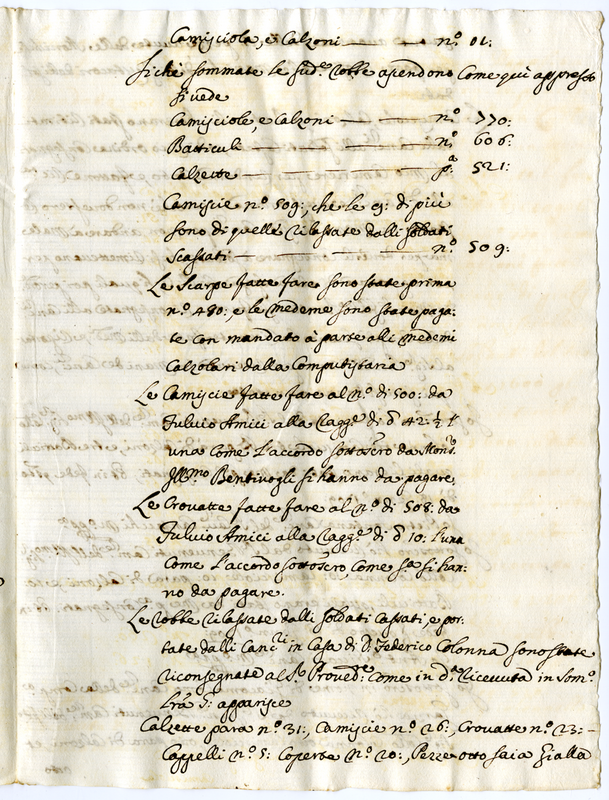 Camisciola, e Calzoni — n.º 01:
Si che sommate le sud.e robbe ascendono Come qui appresso
si vede
Camisciole, e Calzoni — n.º 770:
Batticuli — n.º 606:
Calzette — p.a 521:
Camiscie n.º 509:, che le 9: di più
sono di quelle rilassate dalli soldati
scassati — n.º 509:
Le Scarpe fatte fare sono state prima
n.º 480:, e le medeme sono state paga:
te con mandato à parte alli medemi
Calzolari dalla Computistaria
Le Camiscie fatte fare al n.º di 500: da
Fulvio Amici alla ragg.e di 42 ½ l'
una Come l'accordo sottoscro da Mons.r
Ill.mo Bentivogli si hanno da pagare
Le Crovatte fatte fare al n.º di 508: da
Fulvio Amici alla ragg.e di 10: l'una
Come l'accordo sottoscro, Come s.a si han:
no da pagare.
Le robbe rilassate dalli soldati Cassati, e por:
tate dalli Canc.ri in Casa di D. Federico Colonna sono state
riconsegnate al S.r Proved.re Come in d.a Ricevuta in Som.o
lra S: apparisce
Calzette para n.º 31:, Camiscie n.º 26:, Crovatte n.º 23: -
Cappelli n.º 5: Coperte n.º 20:, Pezze otto saia gialla